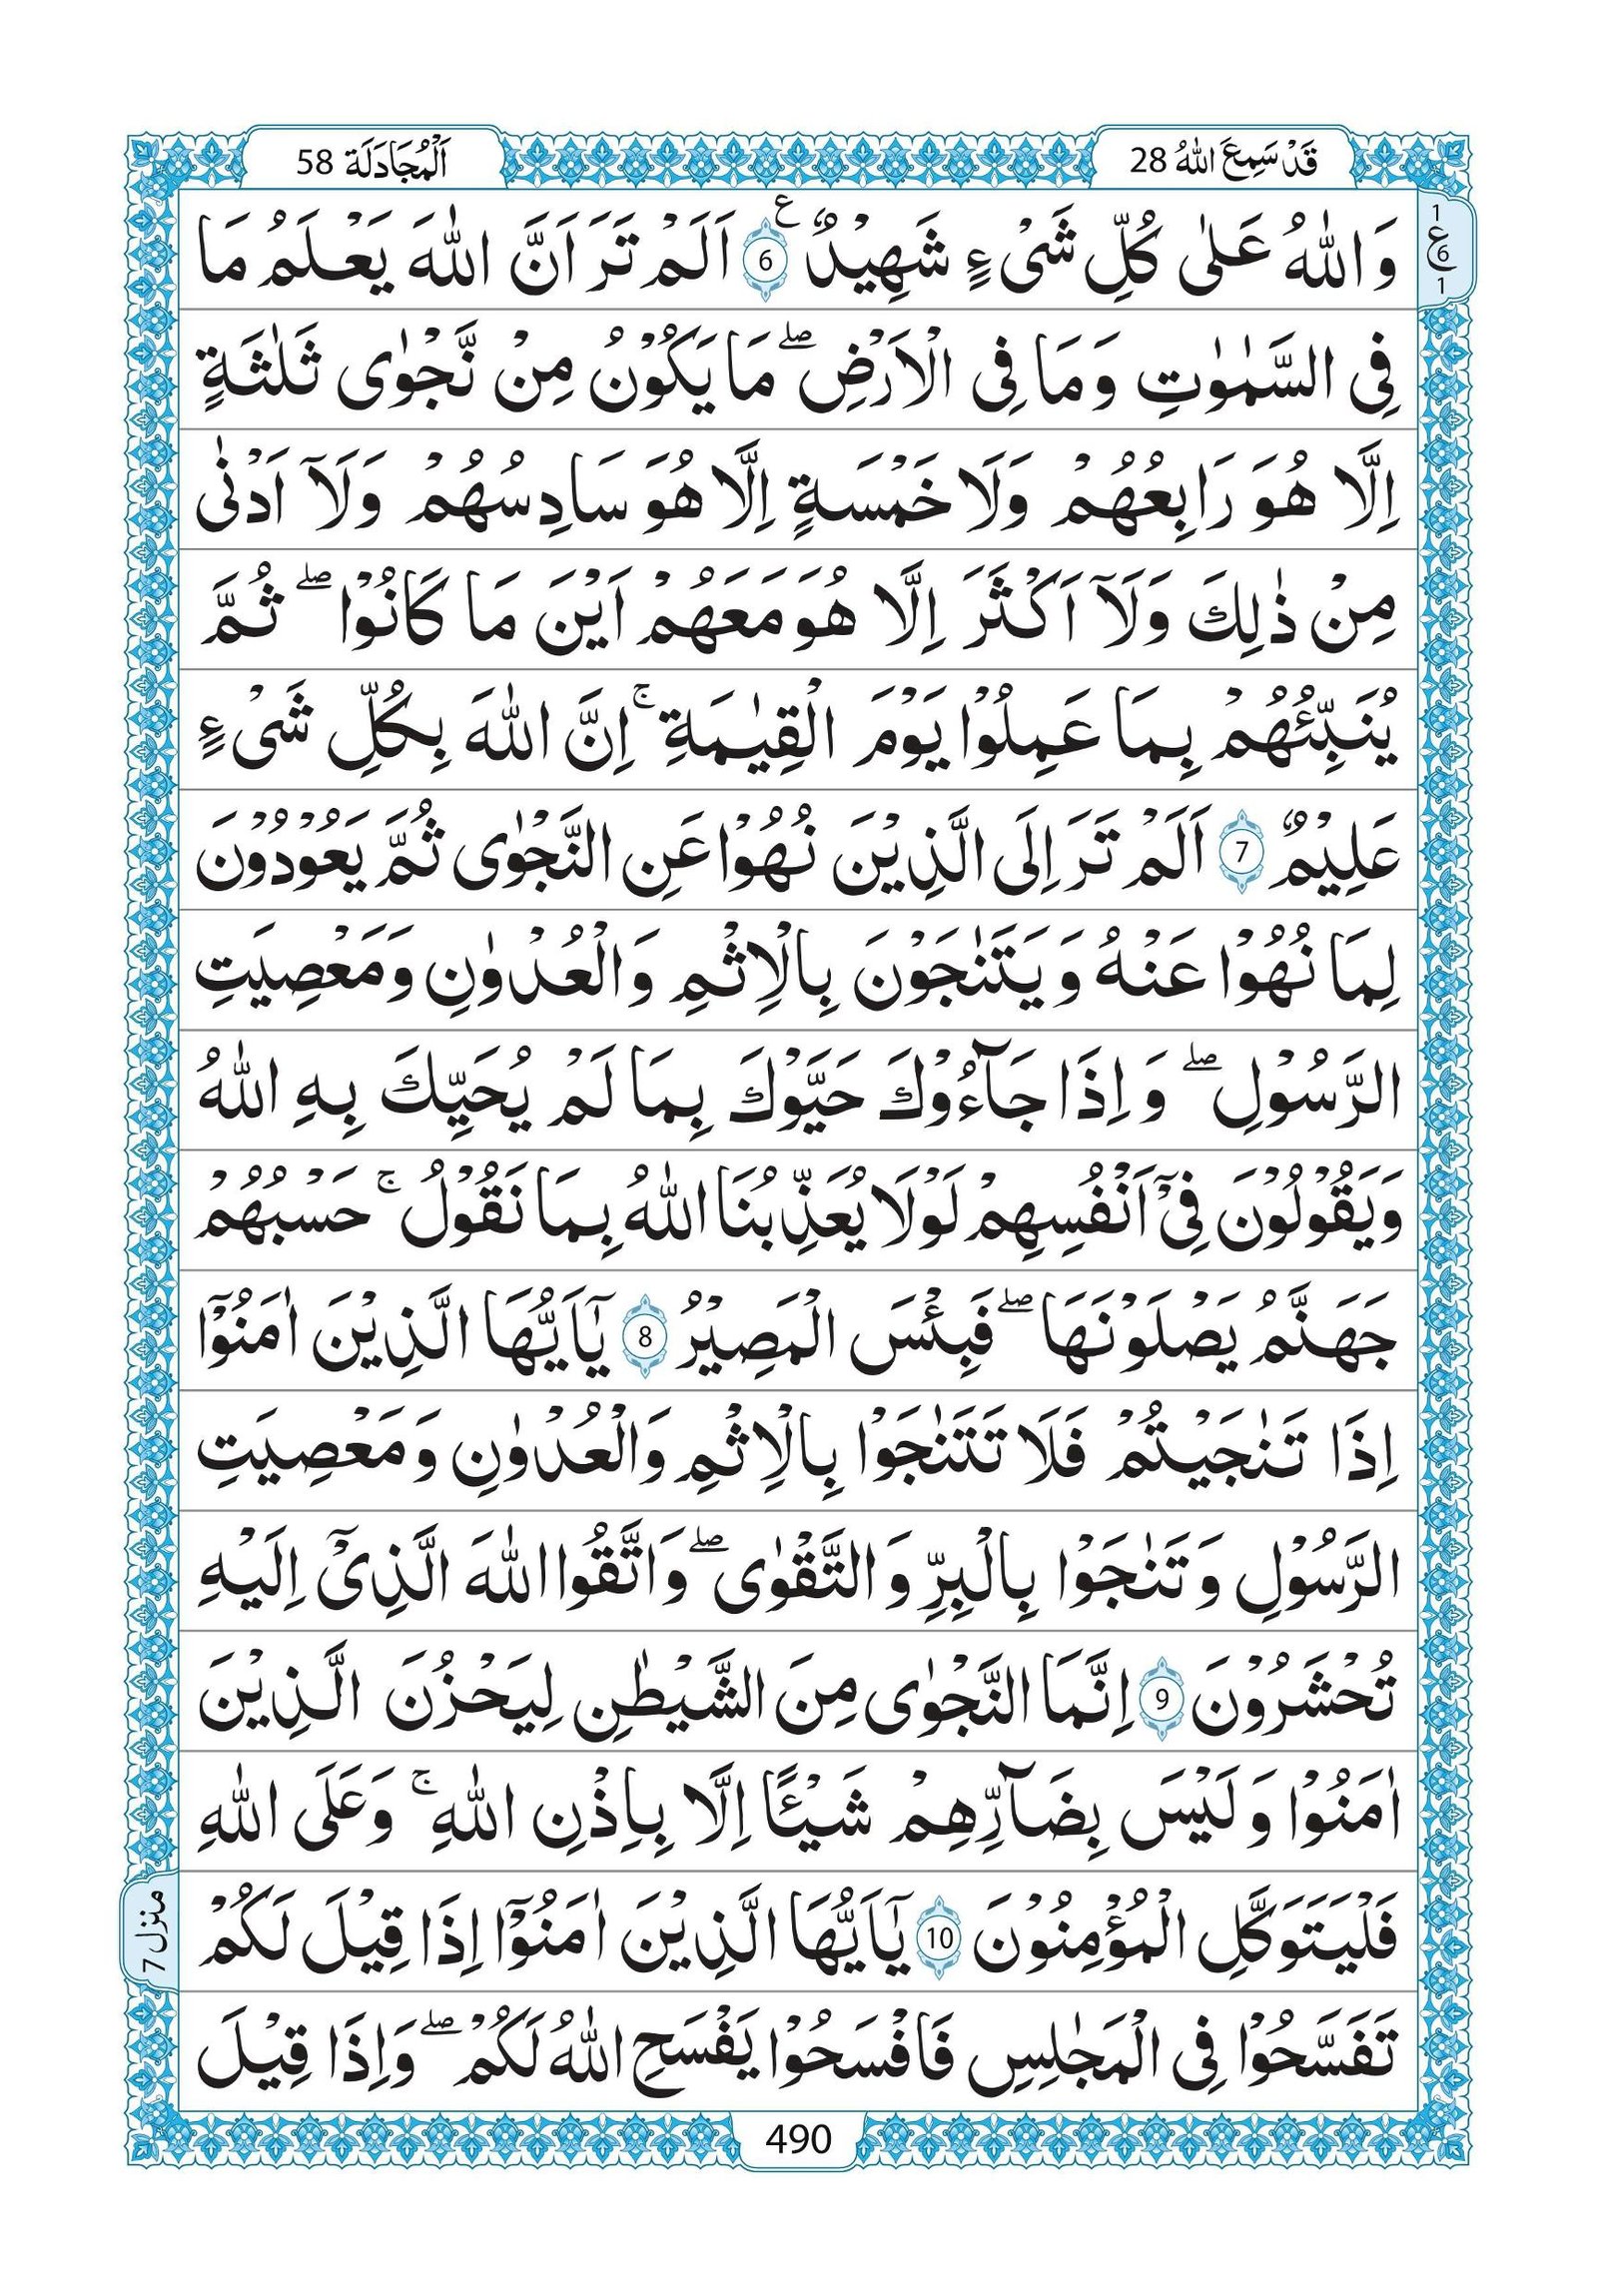 قَدْ سَمِعَ اللّٰهُ 28
اَلْمُجَادَلَة 58
1
ع
6
1
وَاللّٰهُ عَلٰى كُلِّ شَىْءٍ شَهِيْدٌ ۧ 6 اَلَمْ تَرَ اَنَّ اللّٰهَ يَعْلَمُ مَا
فِى السَّمٰوٰتِ وَمَا فِى الْاَرْضِ ۖ مَا يَكُوْنُ مِنْ نَّجْوٰى ثَلٰثَةٍ
اِلَّا هُوَ رَابِعُهُمْ وَلَا خَمْسَةٍ اِلَّا هُوَ سَادِسُهُمْ وَلَاۤ اَدْنٰى
مِنْ ذٰلِكَ وَلَاۤ اَكْثَرَ اِلَّا هُوَ مَعَهُمْ اَيْنَ مَا كَانُوْا ۖ ثُمَّ
يُنَبِّئُهُمْ بِمَا عَمِلُوْا يَوْمَ الْقِيٰمَةِ ۚ اِنَّ اللّٰهَ بِكُلِّ شَىْءٍ
عَلِيْمٌ 7 اَلَمْ تَرَ اِلَى الَّذِيْنَ نُهُوْا عَنِ النَّجْوٰى ثُمَّ يَعُوْدُوْنَ
لِمَا نُهُوْا عَنْهُ وَيَتَنٰجَوْنَ بِالْاِثْمِ وَالْعُدْوٰنِ وَمَعْصِيَتِ
الرَّسُوْلِ ۖ وَاِذَا جَآءُوْكَ حَيَّوْكَ بِمَا لَمْ يُحَيِّكَ بِهِ اللّٰهُ
وَيَقُوْلُوْنَ فِىْۤ اَنْفُسِهِمْ لَوْلَا يُعَذِّبُنَا اللّٰهُ بِمَا نَقُوْلُ ۚ حَسْبُهُمْ
جَهَنَّمُ يَصْلَوْنَهَا ۖ فَبِئْسَ الْمَصِيْرُ 8 يٰۤاَيُّهَا الَّذِيْنَ اٰمَنُوْۤا
اِذَا تَنٰجَيْتُمْ فَلَا تَتَنٰجَوْا بِالْاِثْمِ وَالْعُدْوٰنِ وَمَعْصِيَتِ
الرَّسُوْلِ وَتَنٰجَوْا بِالْبِرِّ وَالتَّقْوٰى ۖ وَاتَّقُوا اللّٰهَ الَّذِىْۤ اِلَيْهِ
تُحْشَرُوْنَ 9 اِنَّمَا النَّجْوٰى مِنَ الشَّيْطٰنِ لِيَحْزُنَ الَّذِيْنَ
اٰمَنُوْا وَلَيْسَ بِضَآرِّهِمْ شَيْئًا اِلَّا بِاِذْنِ اللّٰهِ ۚ وَعَلَى اللّٰهِ
فَلْيَتَوَكَّلِ الْمُؤْمِنُوْنَ 10 يٰۤاَيُّهَا الَّذِيْنَ اٰمَنُوْۤا اِذَا قِيْلَ لَكُمْ
تَفَسَّحُوْا فِى الْمَجٰلِسِ فَافْسَحُوْا يَفْسَحِ اللّٰهُ لَكُمْ ۖ وَاِذَا قِيْلَ
منزل 7
490